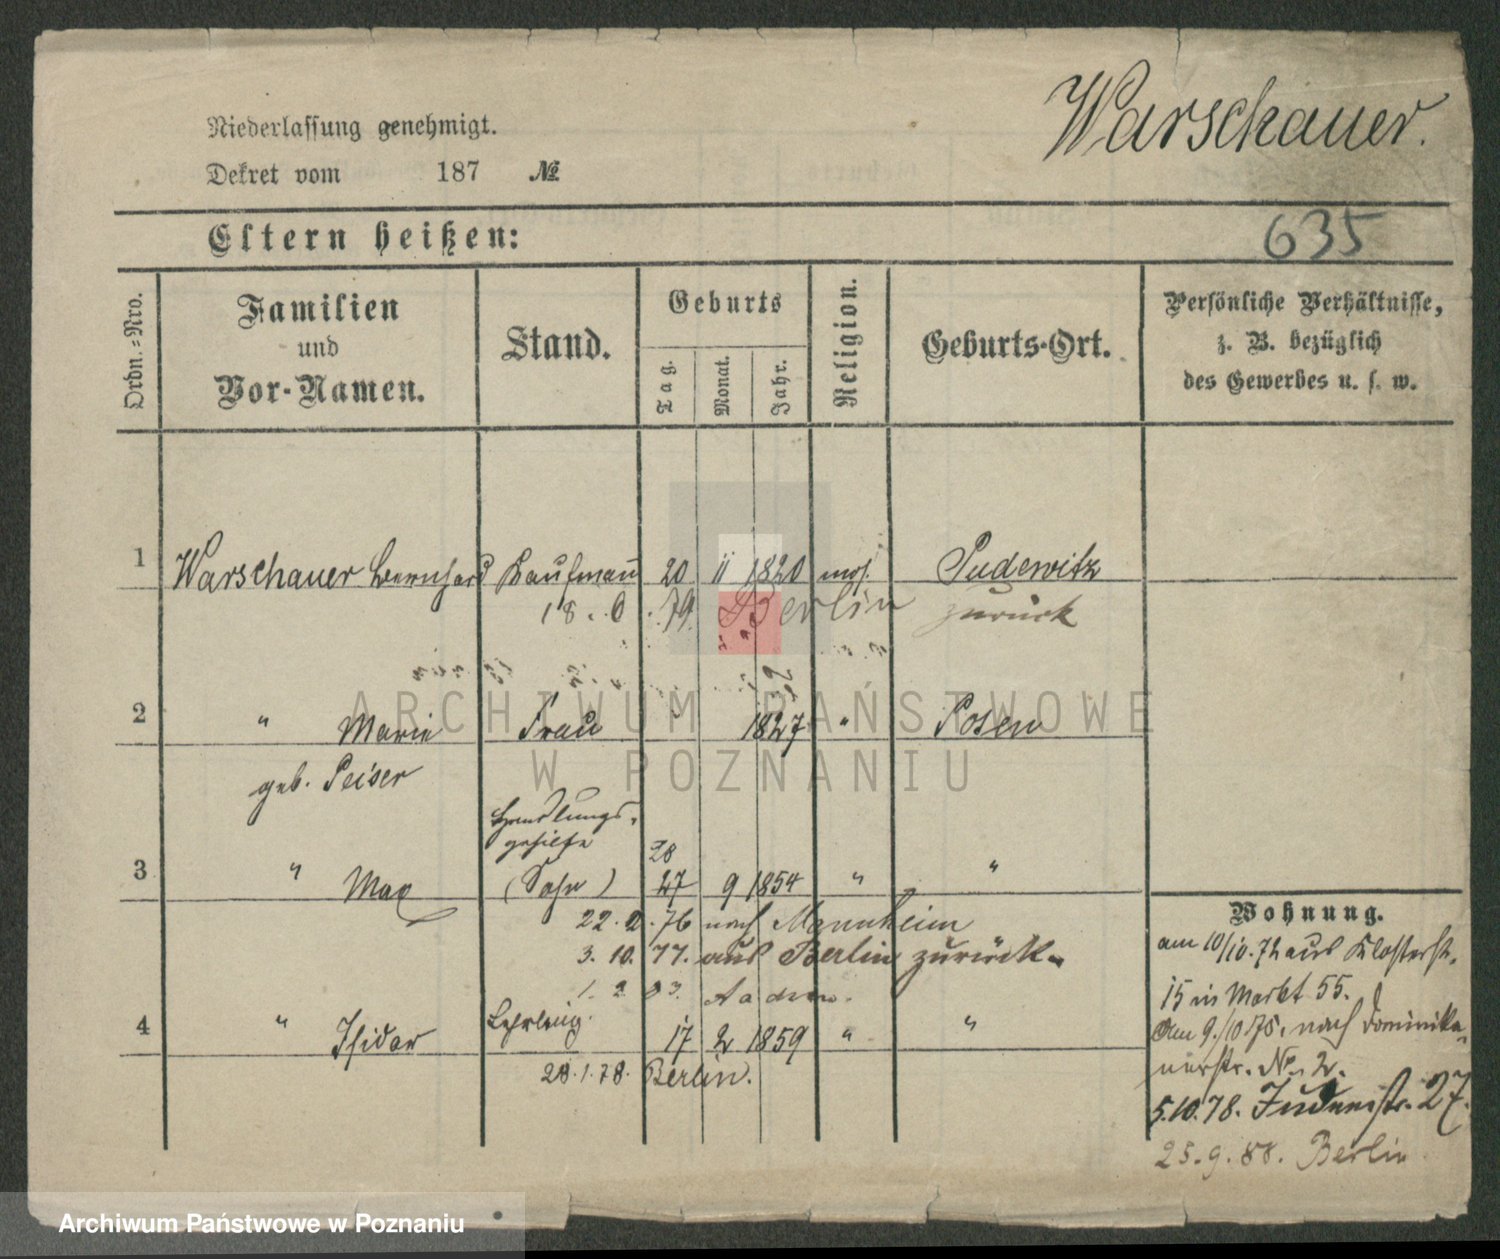 Warschauer.
Niederlassung genehmigt.
Dekret vom 187 №
Eltern heißen:
635
Ordn.=Nro.
Familien
und
Vor-Namen.
Stand.
Geburts
Tag.
Monat.
Jahr.
Religion.
Geburts-Ort.
Persönliche Verhältnisse,
z. B. bezüglich
des Gewerbes u. s. w.
1 Warschauer Bernhard Kaufmann 20 11 1820 mos. Pudewitz
18. 6. 79. Berlin zurück
2 " Marie Frau 1827 " Posen
geb. Peiser
Handlungs-
gehilfe
28
3 " Max (Sohn) 27 9 1854 " "
22. 2. 76 nach Mannheim
3. 10. 77. aus Berlin zurück.
1. 2. 83.
4 " Isidor Lehrling. 17 2 1859 " "
28. 1. 78. Berlin.
Wohnung.
am 10/10. 72 aus Klosterst.
15 in Markt 55.
Am 9./10 75. nach Dominika-
nerstr. No. 2.
5. 10. 78. Judenstr. 27.
25. 9. 88. Berlin
ARCHIWUM PAŃSTWOWE
W POZNANIU
Archiwum Państwowe w Poznaniu